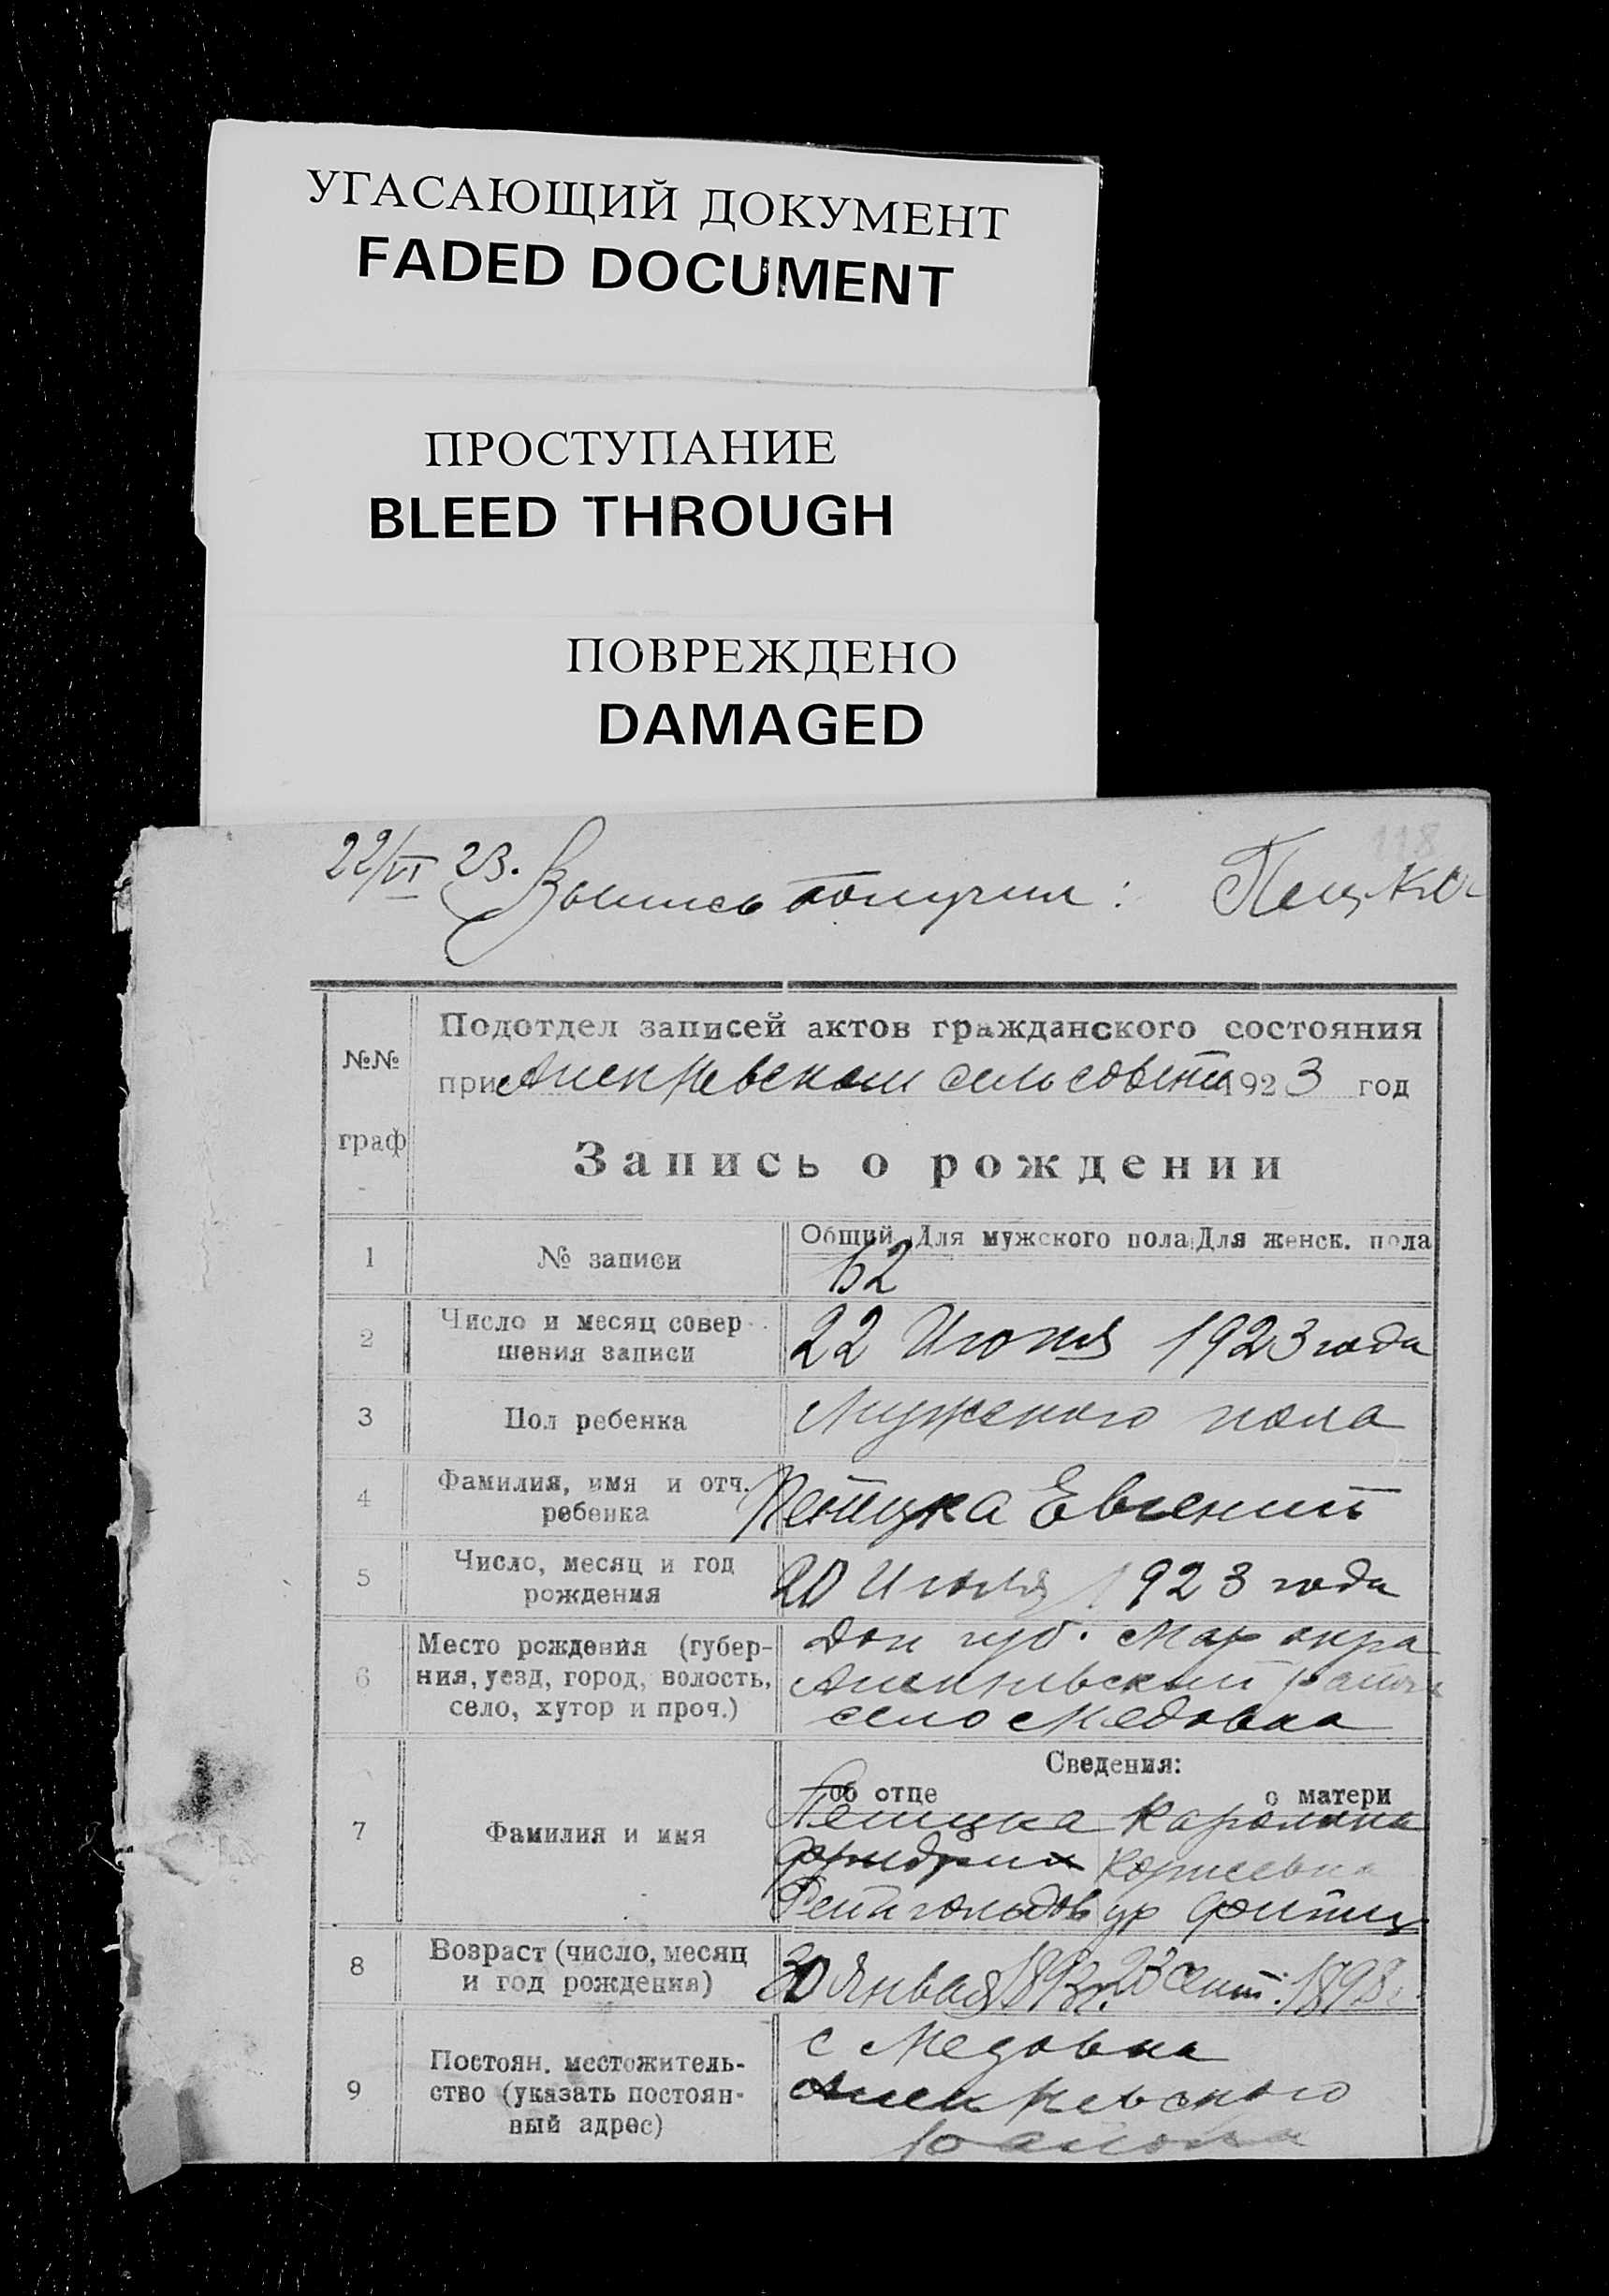 УГАСАЮЩИЙ ДОКУМЕНТ
FADED DOCUMENT
ПРОСТУПАНИЕ
BLEED THROUGH
ПОВРЕЖДЕНО
DAMAGED
118
22/VI 23. Выпись получил:
№№ граф
Подотдел записей актов гражданского состояния
при Алек Невском сельсовете 1923 год
Запись о рождении
Общий Для мужского пола Для женск. пола
1 № записи
2 Число и месяц совер-
шения записи 22 Июня 1923 года
3 Пол ребенка Мужского пола
4 Фамилия, имя и отч.
ребенка Петцка Евгений
5 Число, месяц и год
рождения 20 1923 года
6 Место рождения (губер-
ния, уезд, город, волость,
село, хутор и проч.)
Дон губ. Мар окра
района
село Медовка
Сведения:
об отце о матери
7 Фамилия и имя
Петцка Каролина
Фридрих Корнеевна
ур
8 Возраст (число, месяц
и год рождения) 30 Января 1893 г. 23 Сент. 1898 г.
9 Постоян. местожитель-
ство (указать постоян-
ный адрес)
с Медовка
Алек Невского
района